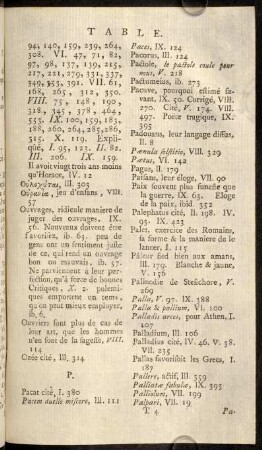 TABLE.
94, 140, 159, 239, 264,
308. VI. 47, 71, 82,
97, 98, 137, 139, 215,
217, 221, 279, 331, 337,
349, 353, 391. VII. 61,
168, 265, 312, 350.
VIII. 75, 148, 190,
318, 345, 378, 464,
553. IX. 100, 159, 185,
188, 260, 264, 285, 286,
315. X. 119. Expli-
qué, I. 95, 123. II. 82.
III. 206. IX. 159.
Il avoit vingt trois ans moins
qu'Horace, IV. 12
III. 303
jeu d'enfans, VIII.
57
Ouvrages, ridicule maniere de
juger des ouvrages, IX.
56. Nouveaux doivent être
favorisez, ib. 63. peu de
gens ont un sentiment juste
de ce qui rend un ouvrage
bon ou mauvais, ib. 57.
Ne parviennent à leur per-
fection, qu'à force de bonnes
Critiques, X. 2. polemi-
ques emportent un tems,
qu'on peut mieux employer,
ib. 6
Ouvriers font plus de cas de
leur art, que les hommes
n'en font de la sagesse, VIII.
114
Ozée cité, III. 314
P.
Pacat cité, I. 380
Pacem duello miscere, III. 111
Paces, IX. 124
Pacorus, III. 124
Pactole, le pactole coule pour
vous, V. 218
Pactumeius, ib. 273
Pacuve, pourquoi estimé sa-
vant, IX. 50. Corrigé, VIII.
270. Cité, V. 174. VIII.
497. Poëte tragique, IX.
395
Padouans, leur langage diffus,
II. 8
Paenula solstitio, VIII. 329
Paetus, VI. 142
Pagus, II. 179
Paisans, leur éloge, VII. 90
Paix souvent plus funeste que
la guerre, IX. 63. Eloge
de la paix, ibid. 352
Palephatus cité, II. 198. IV.
93. IX. 423
Palet, exercice des Romains,
sa forme & la maniere de le
lancer, I. 115
Pâleur sied bien aux amans,
III. 179. Blanche & jaune,
V. 156
Palinodie de Stesichore, V.
269
Palla, V. 97. IX. 388
Palla & pallium, VI. 100
Palladis arces, pour Athen, I.
107
Palladium, III. 106
Palladius cité, IV. 46. V. 38.
VII. 235
Pallas favorisoit les Grecs, I.
187
Pallere, actif, III. 359
Palliatae fabulae, IX. 395
Palliolum, VII. 199
Palpari, VII. 19
T 4
Pa-